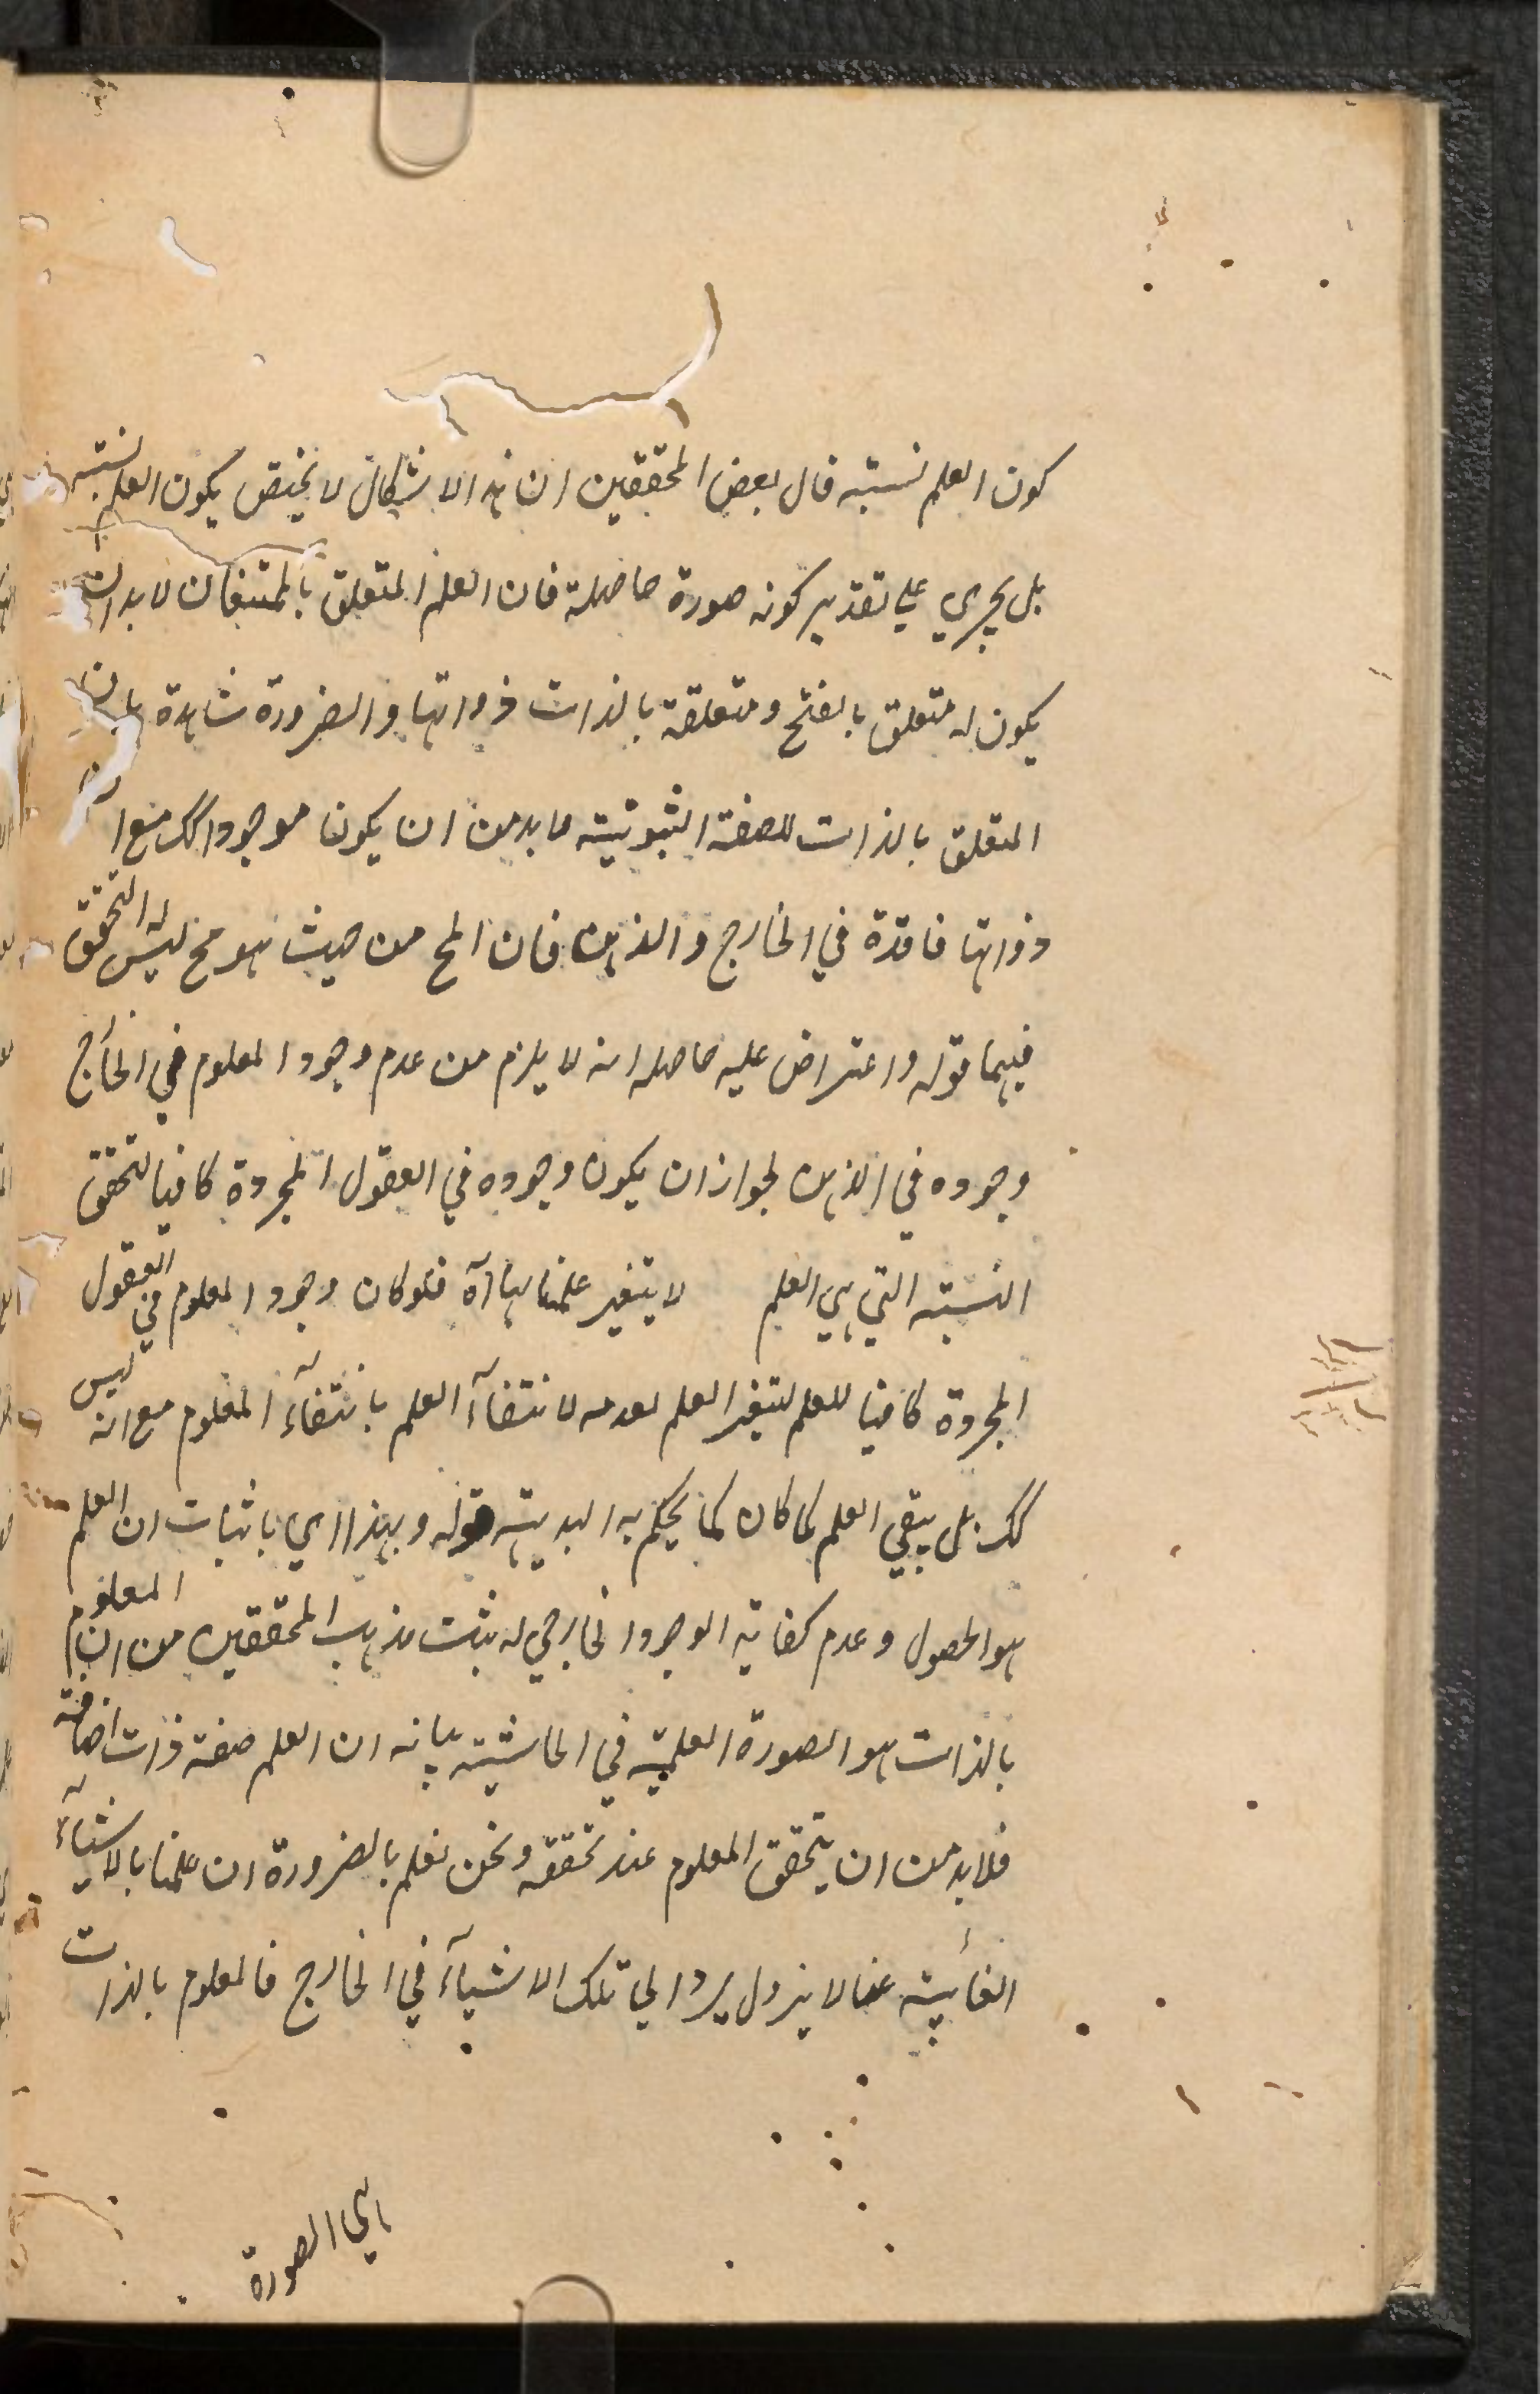 كون العلم نسبته قال بعض المحققين ان هذا الاشكال لا يختص بكون العلم نسبته
بل يجري علي تقدير كونه صورة حاصلة فان العلم المتعلق بالممتنعات لا بد ان
يكون له متعلق بالفتح ومتعلقة بالذات ذواتها والضرورة شاهدة بان
المتعلق بالذات للصفة الثبوتية لا بد من ان يكون موجودا كك مع ان
ذواتها فاقدة في الخارج والذهن فان المح من حيث هو مح ليس له التحقق
فيهما قوله واعتراض عليه حاصله انه لا يلزم من عدم وجود المعلوم في الخارج
وجوده في الذهن لجواز ان يكون وجوده في العقول المجردة كافيا لتحقق
النسبته التي هي العلم لا يتغير علمنا بها آه فلو كان وجود المعلوم في العقول
المجردة كافيا للعلم لتغير العلم بعدمه لانتفاء العلم بانتفاء المعلوم مع انه ليس
كك بل يبقي العلم كما كان كما يحكم به البديهته قوله وبهذا اي باثبات ان العلم
هو الحصول وعدم كفاية الوجود الخارجي له يثبت مذهب المحققين من ان المعلوم
بالذات هو الصورة العلمية في الحاشيته بيانه ان العلم صفة ذات اضافة
فلا بد من ان يتحقق المعلوم عند تحققه ونحن نعلم بالضرورة ان علمنا بالاشياء
الغائبة عنا لا يزول بزوال تلك الاشياء في الخارج فالمعلوم بالذات
هي الصورة